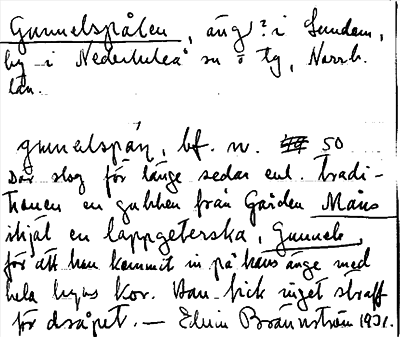 Gunnelspålen, äng? i Sundom,
by i Nederluleå sn o tg, Norrb.
län.
gunnelspån, bf. n. 50
Där slog för länge sedan enl. tradi-
tionen en gubben från Gården Måns
ihjäl en lappgeterska, Gunnel,
för att hon kommit in på hans änge med
hela byns kor. Han fick inget straff
för dråpet. — Edvin Brännström 1931.